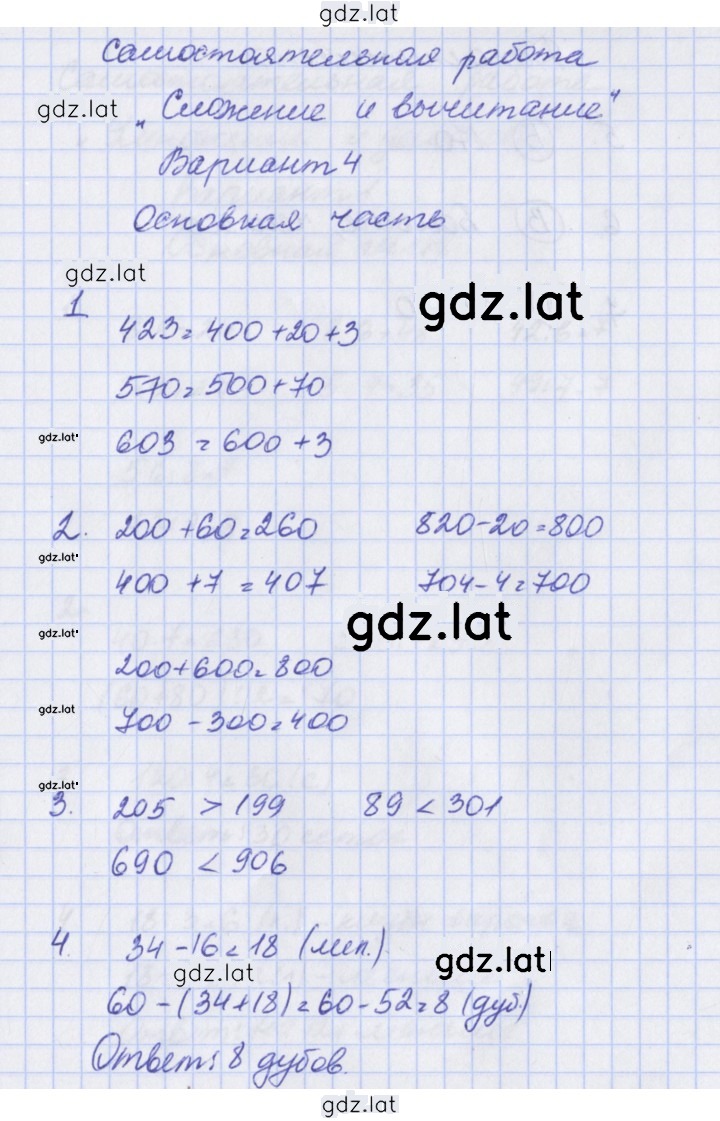 gdz.lat
Самостоятельная работа
gdz.lat
„Сложение и вычитание"
Вариант 4
Основная часть
gdz.lat
gdz.lat
1
423=400+20+3
570=500+70
gdz.lat
603=600+3
2. 200+60=260 820-20=800
gdz.lat
400+7=407 704-4=700
gdz.lat
gdz.lat
200+600=800
gdz.lat
700-300=400
gdz.lat
3. 205 > 199 89 < 301
690 < 906
4. 34-16=18 (лип.)
gdz.lat
gdz.lat
60-(34+18)=60-52=8 (дуб.)
Ответ: 8 дубов.
gdz.lat